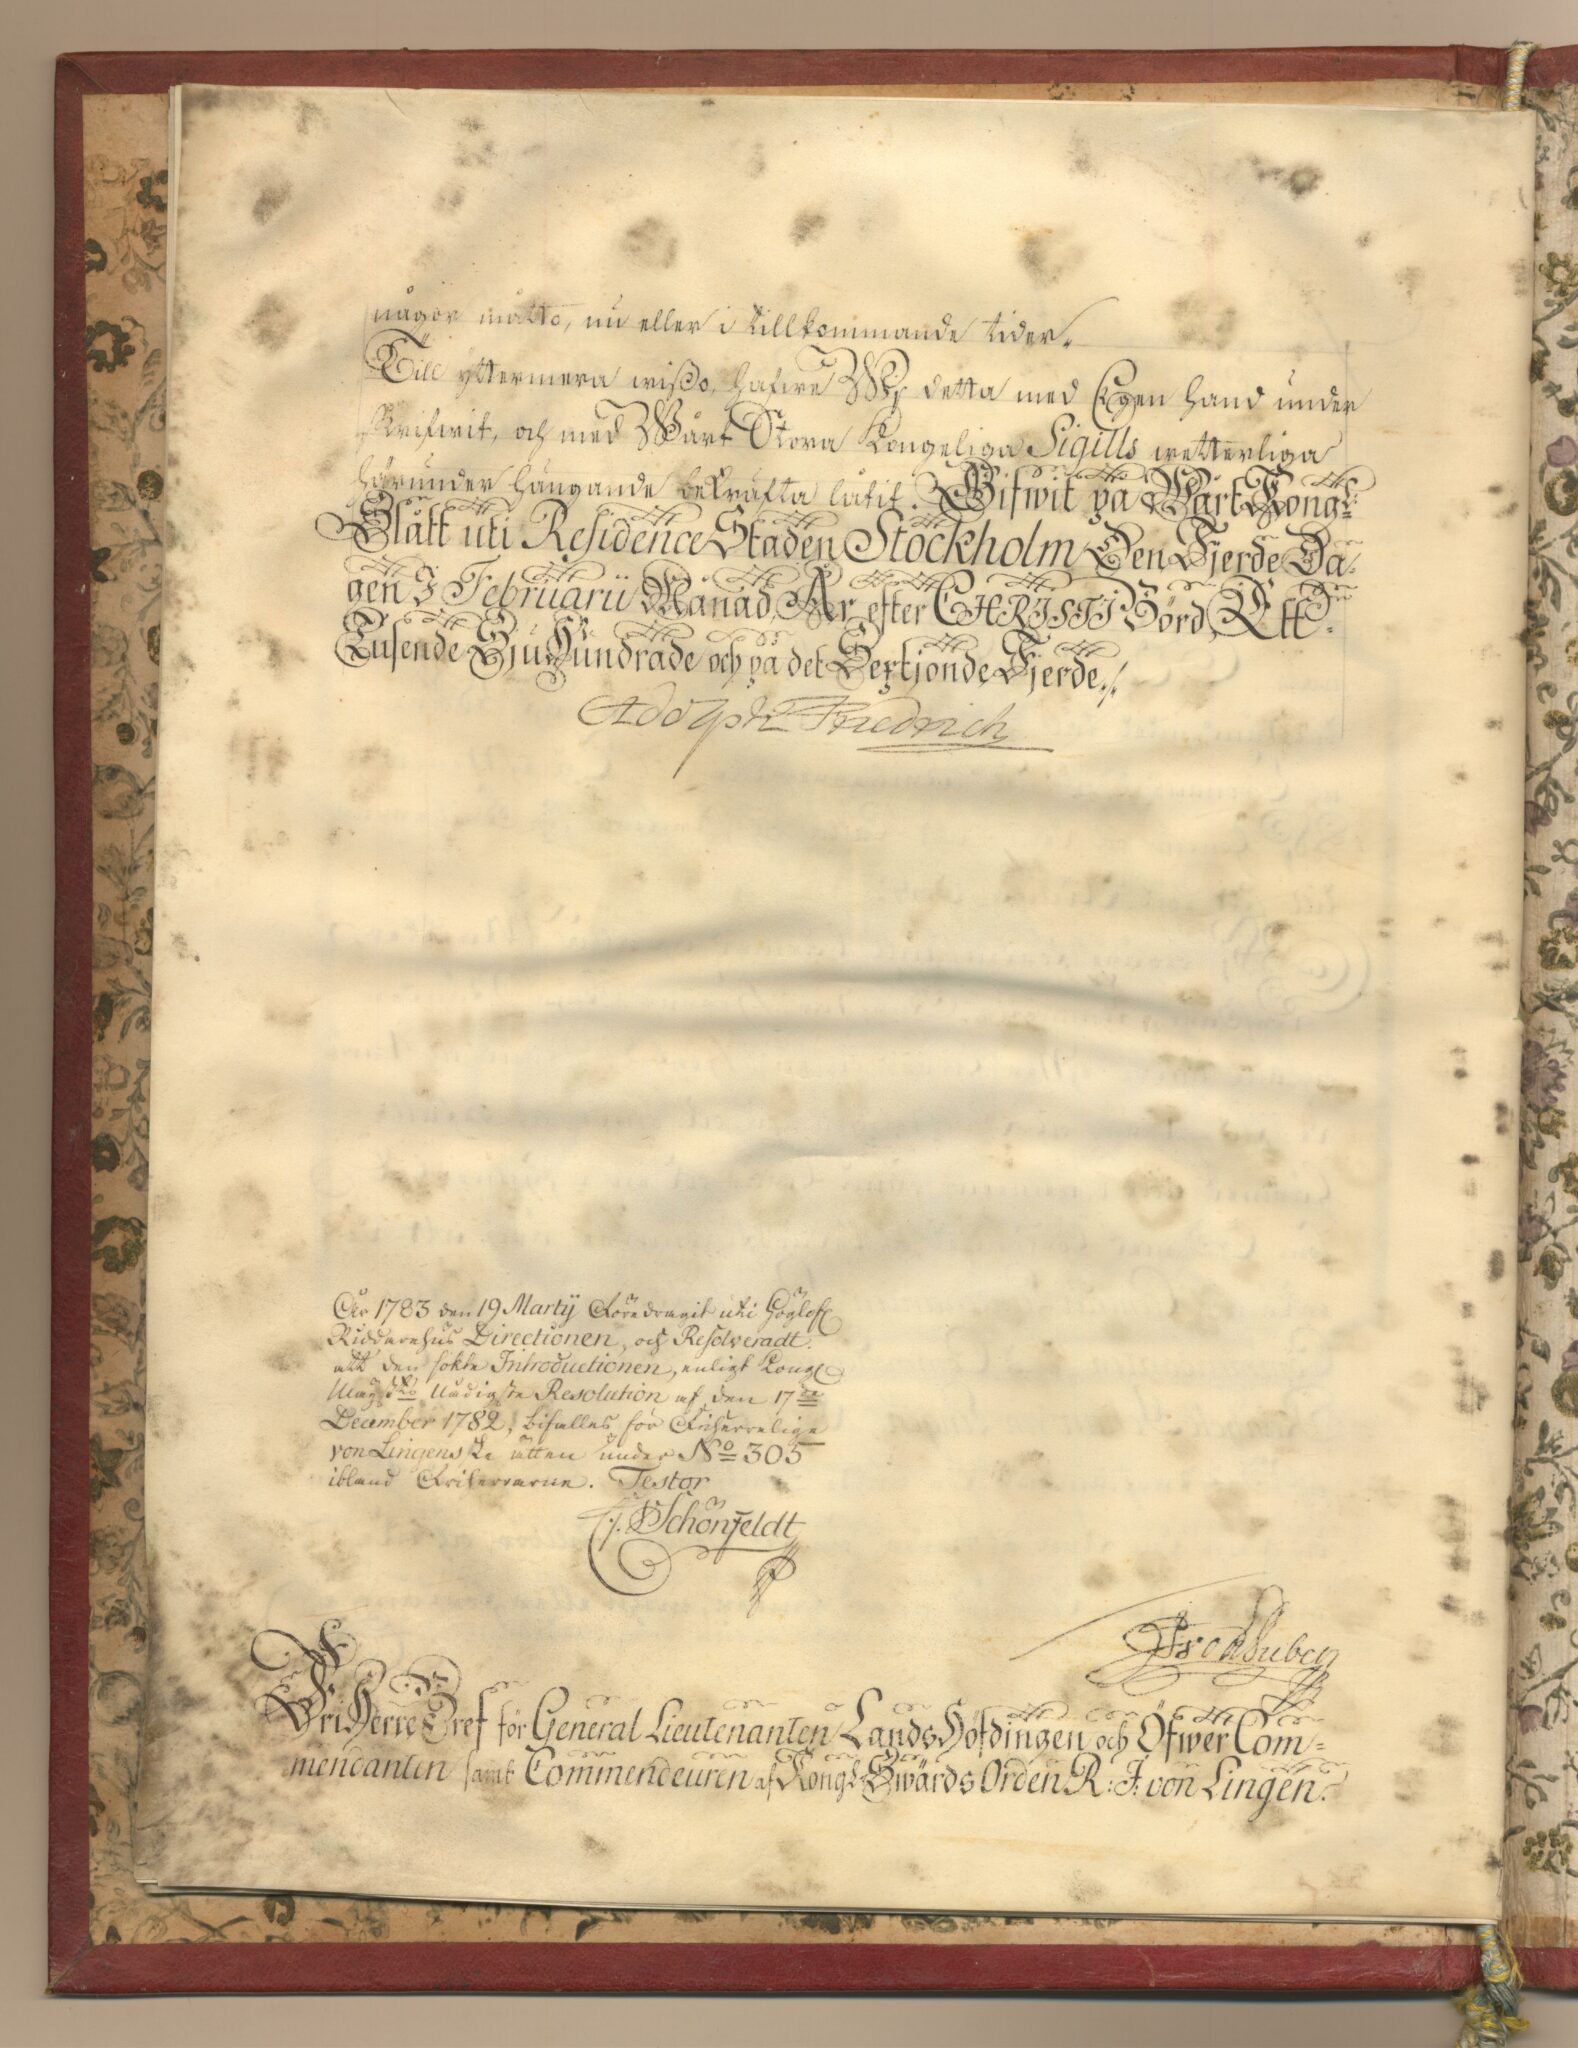 någor måtto, nu eller i tillkommande tider.
Till yttermera wißo, hafwe Wij detta med Egen hand under
skrifwit, och med Wårt Stora Kongeliga Sigills wetterliga
härunder hängande bekräfta låtit. Gifwit på Wårt Kongl:
Slått uti Residence Staden Stockholm Den Fjerde Da-
gen I Februarii Månad, År efter CHRISTI Börd, Ett
Tusende Sju Hundrade och på det Sextjonde Fjerde./.
Adolph Friedrich
År 1783 den 19 Martij Föredragit uti Höglofl
Riddarehus Directionen, och Resolveradt.
att den sökte Introductionen, enligt Kongl
Maij:tts Nådigste Resolution af den 17de
December 1782, bifalles för Friherrelige
von Lingenske ätten under No 305
ibland Friherrarne. Testor
Schönfeldt
FriHerre Bref för General Lieutenanten LandsHöfdingen och ÖfwerCom-
mendanten samt Commendeuren af Kongl. Swärds Orden R: J: von Lingen.